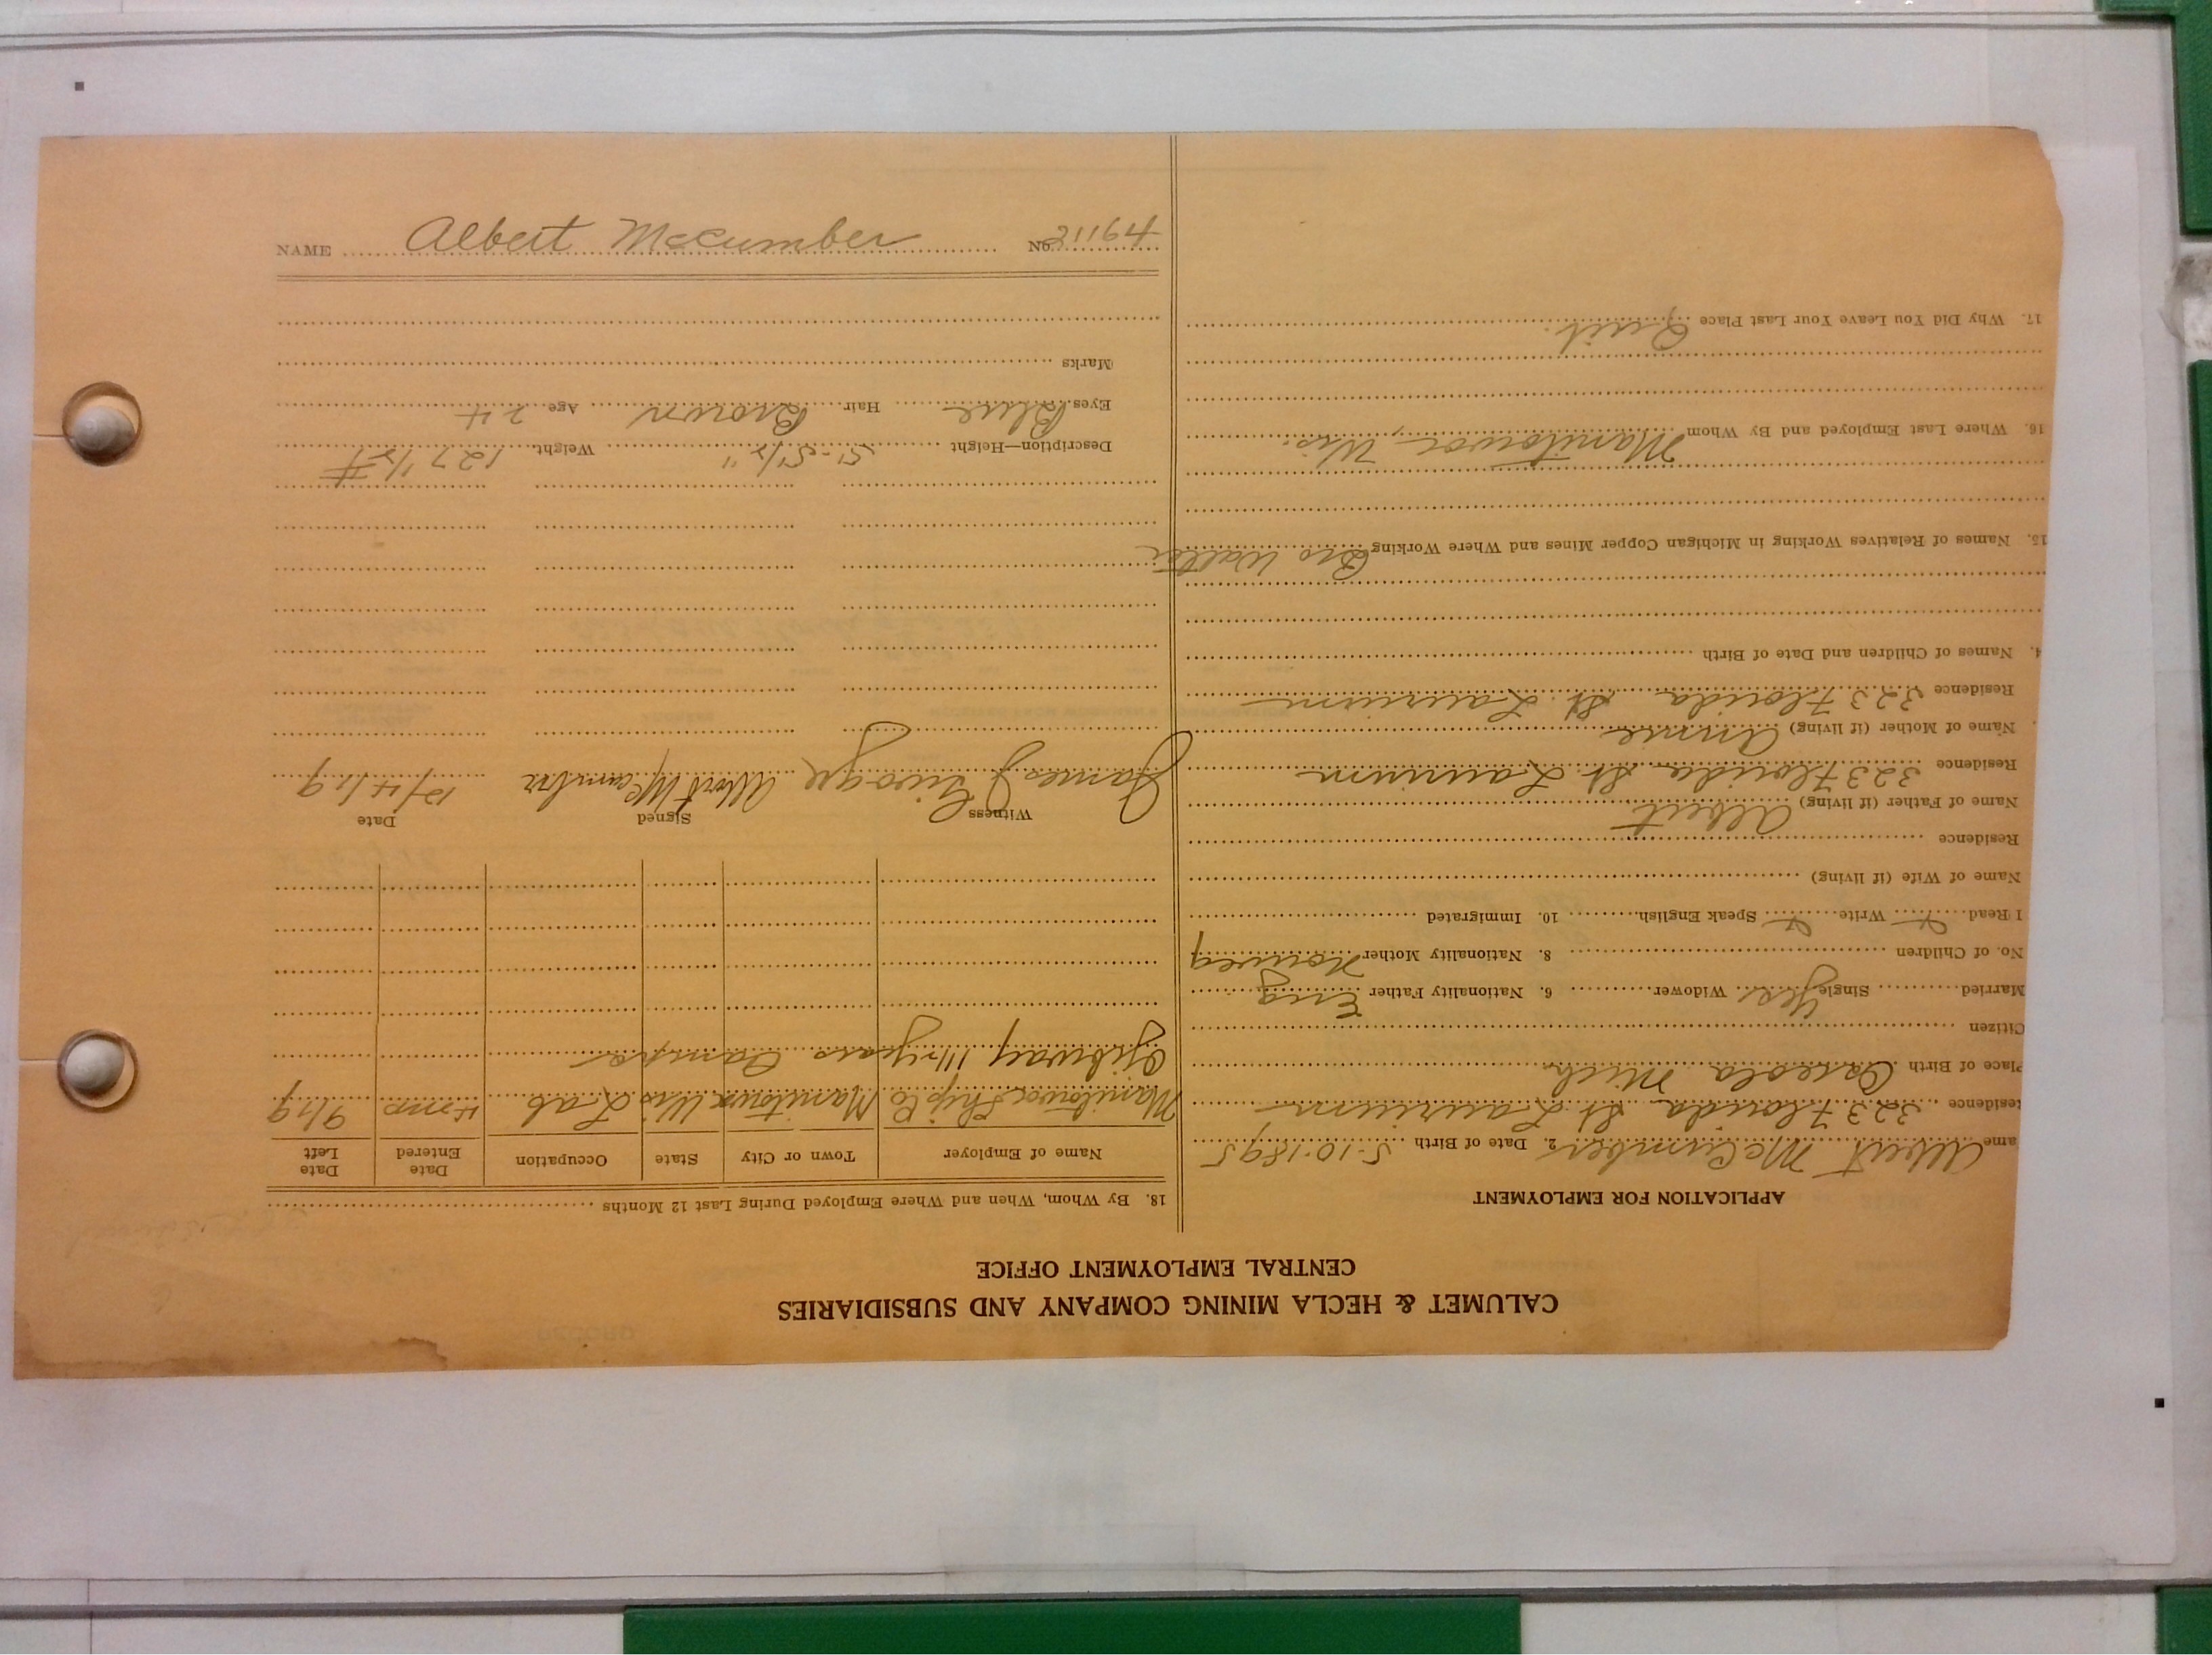 CALUMET & HECLA MINING COMPANY AND SUBSIDIARIES
CENTRAL EMPLOYMENT OFFICE
APPLICATION FOR EMPLOYMENT
ame Albert McCumber 2. Date of Birth 5-10-1895
Residence 323 Florida St. Laurium
Place of Birth Osceola Mich
Citizen
Married Single Yes Widower 6. Nationality Father Eng
No. of Children 8. Nationality Mother Norweg
I Read Write Speak English 10. Immigrated
Name of Wife (if living)
Residence
Name of Father (if living) Albert
Residence 323 Florida St. Laurium
Name of Mother (if living) Annie
Residence 323 Florida St. Laurium
4. Names of Children and Date of Birth
15. Names of Relatives Working in Michigan Copper Mines and Where Working Bro Walter
16. Where Last Employed and By Whom Manitowoc, Wis.
17. Why Did You Leave Your Last Place Quit.
18. By Whom, When and Where Employed During Last 12 Months
Name of Employer Town or City State Occupation Date Entered Date Left
Manitowoc Ship Co Manitowoc Wis Lab 4 mo 9/19
Ojibway Camp
Witness Signed Date
James Albert McCumber 12/4/19
Description—Height 5'-5 1/2" Weight 127 1/2 #
Eyes Blue Hair Brown Age 24
Marks
NAME Albert McCumber No. 21164